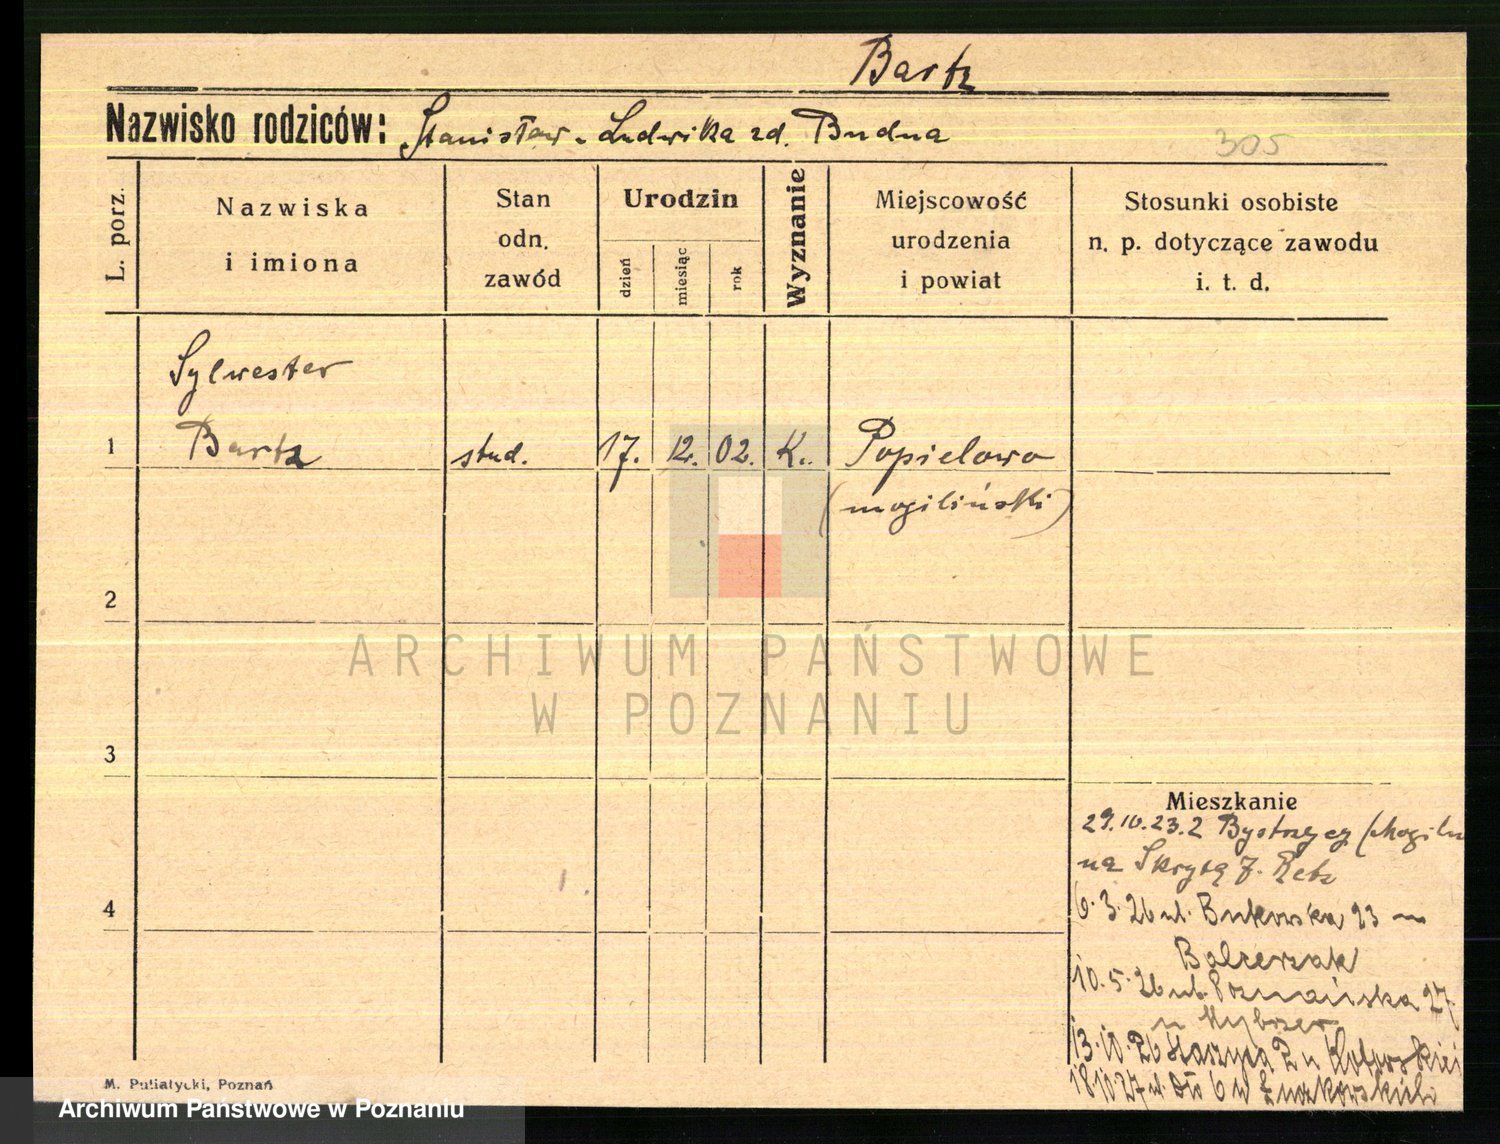 Bartz
Nazwisko rodziców: Stanisław - Ludwika zd. Budna
305
L. porz.
Nazwiska
i imiona
Stan
odn.
zawód
Urodzin
dzień
miesiąc
rok
Wyznanie
Miejscowość
urodzenia
i powiat
Stosunki osobiste
n. p. dotyczące zawodu
i. t. d.
Sylwester
1 Bartz stud. 17. 12. 02. K. Popielowo
(mogiliński)
2
ARCHIWUM PAŃSTWOWE
W POZNANIU
3
Mieszkanie
29.10.23. z Bystrzycy (Mogilno
na Skrytą 7.
4
6.3.26 ul. Bukowska 23
Balcerzak
10.5.26 ul. Poznańska 27
13.10.26 2 u
18.10.27 ul. 6 u
M. Putiatycki, Poznań
Archiwum Państwowe w Poznaniu